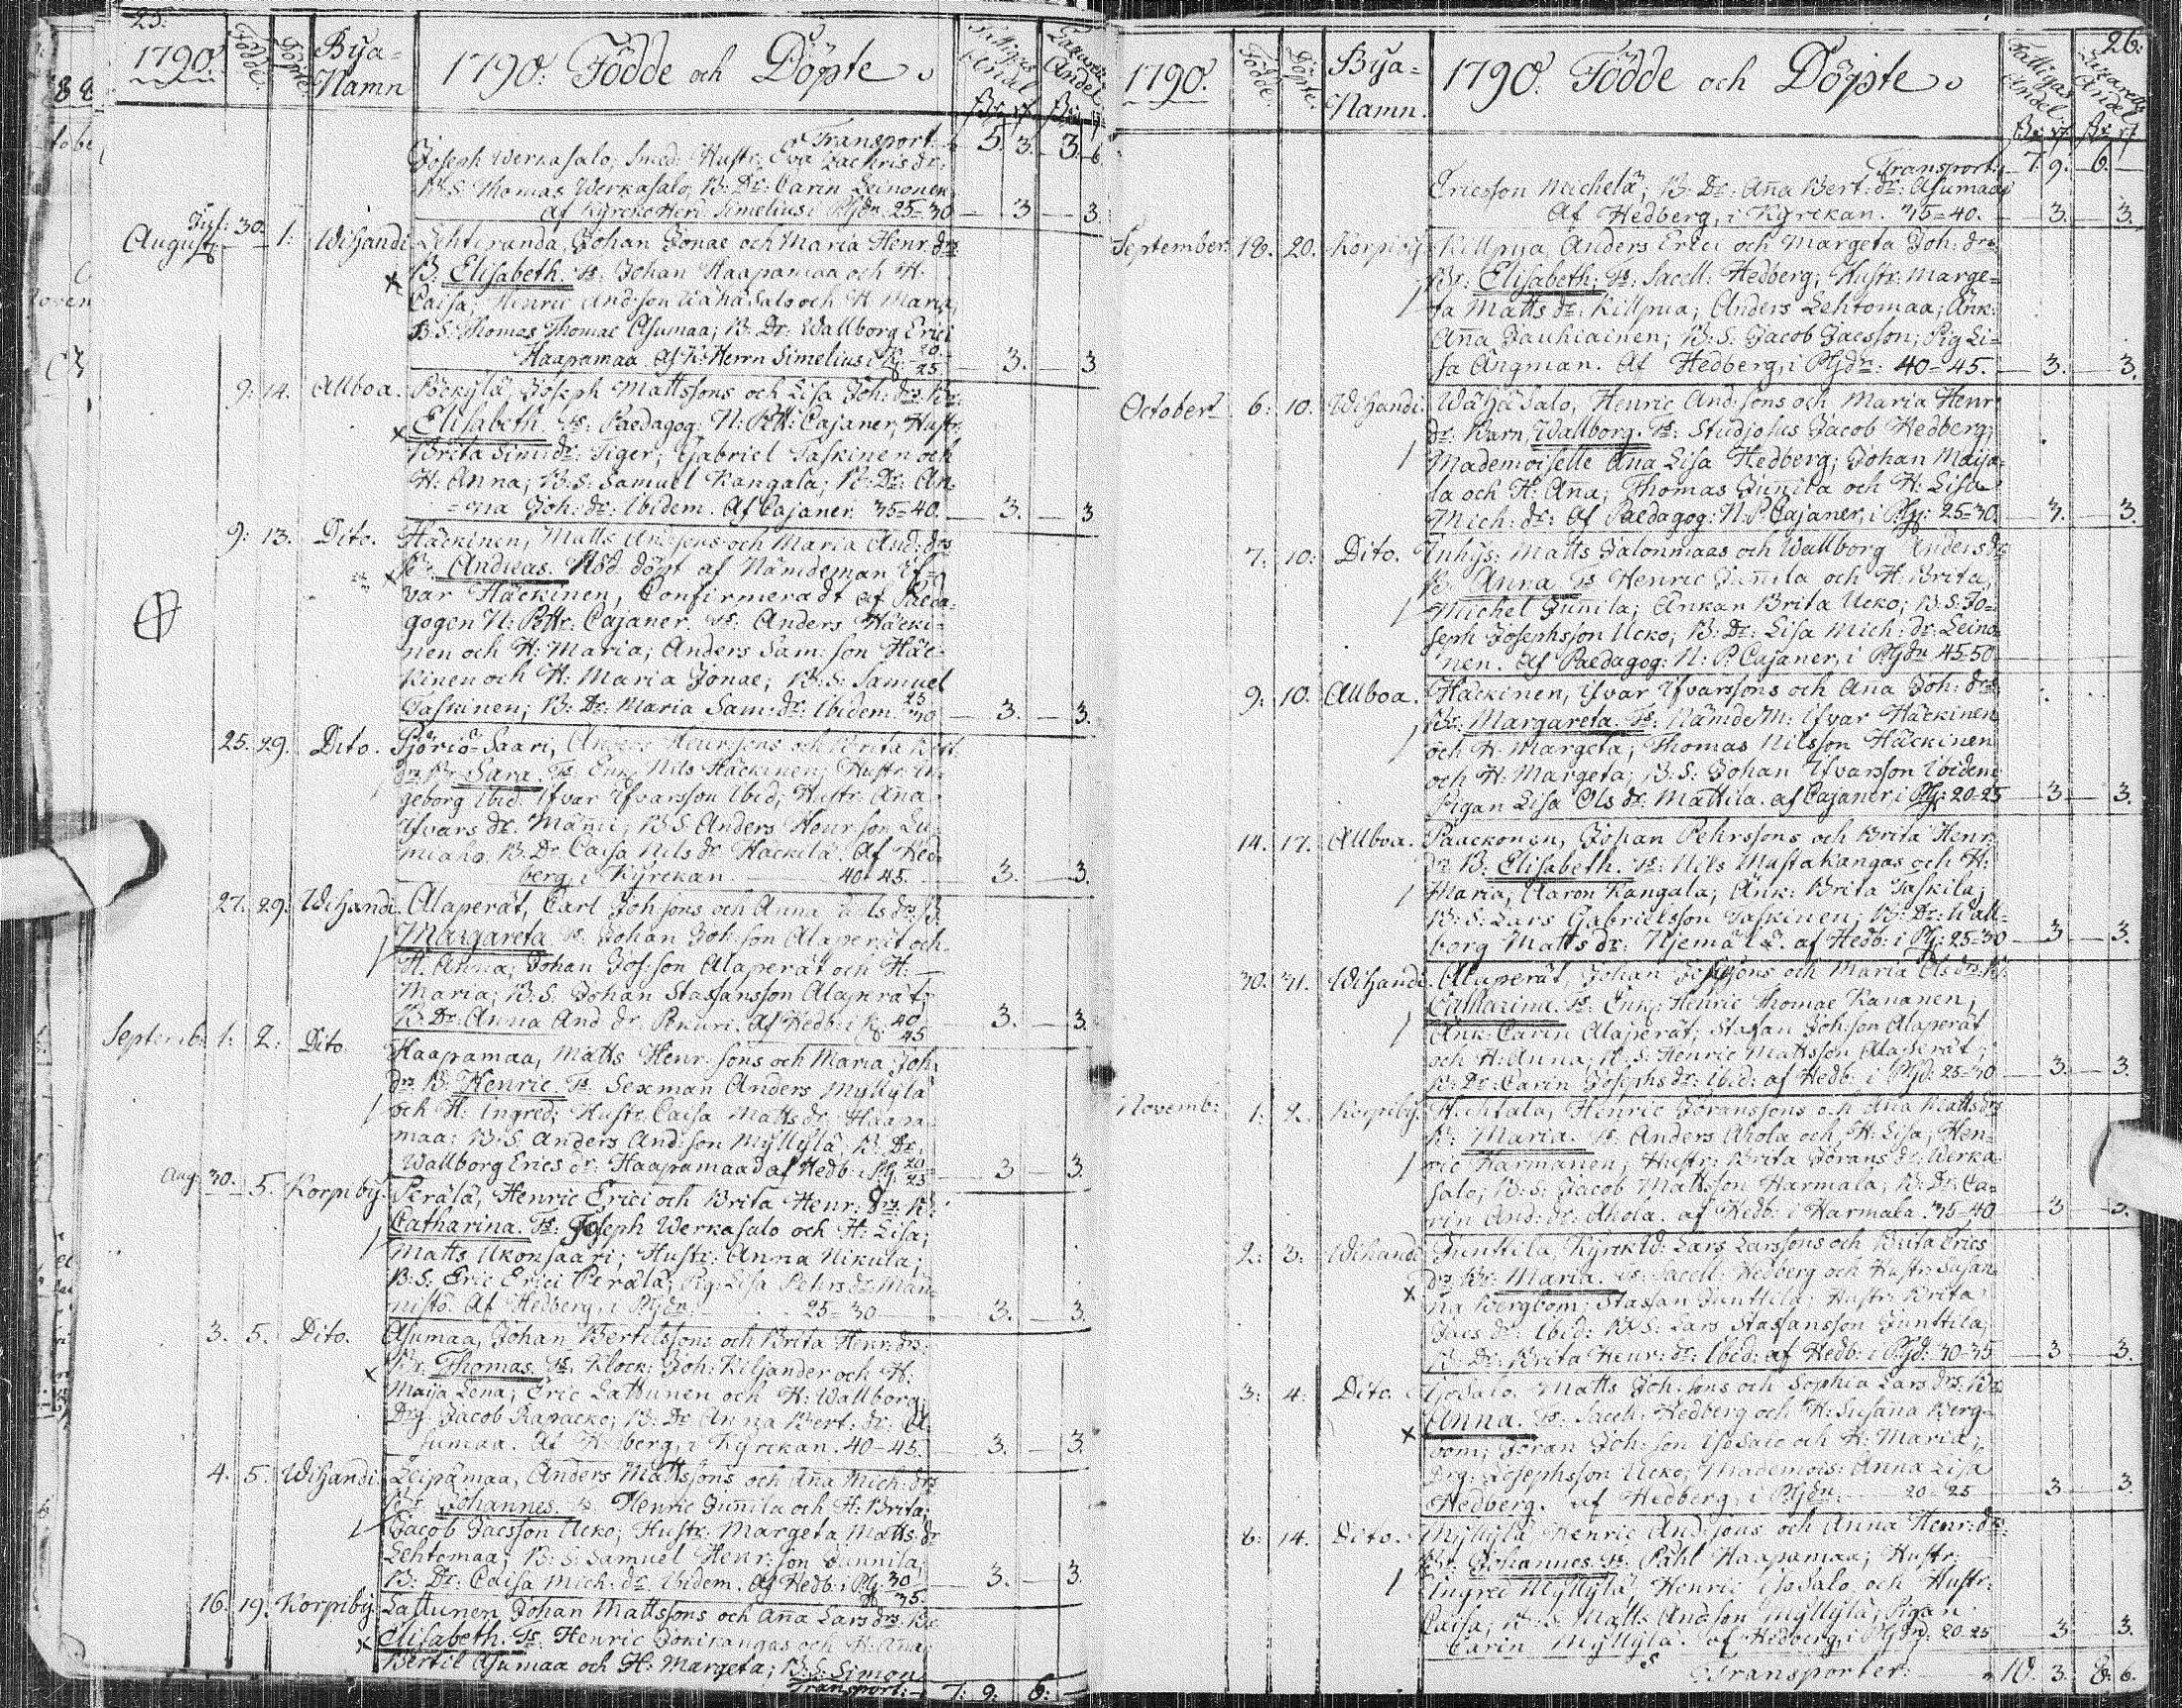 25.
1790. Födde. Döpte. Bya-Namn 1790: Födde och Döpte. Fattigas Andel. Lazarett Andel.
Transport. 5. 3. 3. 6
Joseph Werkasalo, Smed: Hustr: Eva Zachrisdr:
B.S. Thomas Werkasalo, B: Dr: Carin Leinonen
af KyrckoHerd Simelius i Pgdn. 25=30 — 3 — 3.
August Jul: 30. 1: Wihandi Lehtiranda, Johan Jonae och Maria Henr. drs
B: Elisabeth. Ts: Johan Haapamaa och H.
Caisa; Henric And:son Wähäsalo och H. Maria,
B.S: Thomas Thomae Asumaa; B. Dr: Wallborg Erici
Haapamaa. Af K. Herrn Simelius i K. 20. 25 — 3. — 3
9: 14. Allboa. Pöckylä, Joseph Mattssons och Lisa Joh: drs Br:
Elisabeth. Ts: Paedagog: N: Pett: Cajaner, Hustr:
Brita Sim: dr: Tiger; Gabriel Taskinen och
H: Anna; B: S: Samuel Kangala; B: Dr: An
=na Joh: dr: Ibidem. Af Cajaner. 35=40. — 3. — 3
9: 13. Dito. Häckinen, Matts And:sons och Maria And: drs
Br: Andreas. Nöd döpt af Nämdeman If=
var Häckinen, Confirmeradt af Paeda=
gogen N: Pettr: Cajaner. Ts: Anders Häcki=
nen och H: Maria; Anders Sam: son Häc=
kinen och H: Maria Jonae; B: S: Samuel
Taskinen; B: Dr: Maria Sam: dr: Ibidem. 25 30 — 3. — 3.
25. 29. Dito. Saari, Anders Henrsons och Brita
drs Br: Sara. Ts: Enk: Nils Häckinen; Hustr: In
geborg Ibid: Ifvar Ifvarsson Ibid; Hustr: Ana
Ifvars dr. B.S. Anders Henr:son Lu
miaho. B. Dr. Caisa Nils dr Häckilä. Af Hed
berg, i Kyrckan 40-45. — 3. — 3.
27. 29. Wihandi. Alaperät, Carl Joh:sons och Anna drs B:
Margareta. Ts: Johan Joh:son Alaperät och
H. Anna; Johan Jos:son Alaperät och H:
Maria; B: S. Johan Staffansson Alaperät;
B. Dr: Anna And dr. Penuri. Af Hedb: i K: 40 45 — 3. — 3.
Septemb: 1: 2: Dito. Haapamaa, Matts Henr: sons och Maria Joh:
drs B: Henric. Ts: Sexman Anders Myllylä
och H: Ingred; Hustr: Caisa Matts dr: Haapa
maa: B: S. Anders And:son Myllylä, B: Dr:
Wallborg Erics dr: Haapamaa af Hedb: i Pg. 20 25 — 3 — 3.
Aug 30. 5. Korpiby. Perälä, Henric Erici och Brita Henr: drs B:
Catharina. Ts: Joseph Werkasalo och H: Lisa;
Matts Ukonsaari; Hustr: Anna Nikula;
B: S: Eric Erici Perälä; Pig: Lisa Pehrs dr: Man=
nistö. Af Hedberg, i Pgdn. 25=30 — 3. — 3.
3. 5. Dito. Asumaa, Johan Bertilssons och Brita Henr: drs
Br: Thomas. Ts: Klock: Joh: Kiljander och H:
Maija Lena; Eric Lattunen och H: Wallborg;
Drg: Jacob Rapacko; B: Dr Anna Bert: dr: A
sumaa. Af Hedberg, i Kyrckan. 40-45. — 3. — 3.
4. 5. Wihandi. Leipämaa, Anders Mattssons och Ana Mich: drs
Br: Johannes. Ts: Henric Junila och H: Brita;
Jacob Jacsson Ucko; Hustr: Margeta Matts dr
Lehtomaa; B: S: Samuel Henr: son Junnila;
B: Dr: Caisa Mich: dr. Ibidem. Af Hedb: i Pg. 30 35. — 3. — 3.
16. 19. Korpiby. Lattunen Johan Mattssons och Ana Lars drs. Br:
Elisabeth. Ts: Henric Jokikangas och H: Ana;
Bertil Asumaa och H: Margeta; B: S: Simon
Transport: 7: 9: 6: —
26:
1790. Födde. Döpte. Bya-Namn. 1790: Födde och Döpte. Fattigas Andel. Lazarett Andel
Transport: 7. 9: 6: —
Ericsson Mickelä; B: Dr: Ana Bert: dr: Asumaa
Af Hedberg, i Kyrckan. 35=40. — 3. — 3.
September. 18. 20. Korpiby. Killpua Anders Erici och Margeta Joh: drs
Br: Elisabeth. Ts: Sacell: Hedberg; Hustr: Marge=
ta Matts dr: Killpua; Anders Lehtomaa; Änk:
Ana Jauhiainen; B: S: Jacob Jacsson; Pig Li=
sa Ångman. Af Hedberg, i Pgdn: 40=45. — 3. — 3.
October 6: 10. Wihandi. Wähäsalo, Henric And:sons och Maria Henr
dr: Barn, Wallborg. Ts: Studiosus Jacob Hedberg;
Mademoiselle Ana Lisa Hedberg; Johan Maija=
la och H: Ana; Thomas Junila och H: Lisa
Mich: dr: Af Paedagog: N: P: Cajaner, i Pg: 25=30. — 3. — 3.
7. 10: Dito. Inhys: Matts Jalonmaas och Wallborg Anders dr
Br: Anna. Ts: Henric Junila och H: Brita,
Michel Junila; Änkan Brita Ucko; B: S: Jo=
seph Josephsson Ucko; B: Dr: Lisa Mich: dr: Leino=
nen. Af Paedagog: N: P: Cajaner, i Pgdn 45-50
9: 10. Allboa. Häckinen, Ifvar Ifvarssons och Ana Joh: drs
Br: Margareta. Ts: Nämde M: Ifvar Häckinen
och H: Margeta; Thomas Nilsson Häckinen
och H: Margeta; B: S: Johan Ifvarsson Ibidem
Pigan Lisa Ols dr. Mattila. af Cajaner i Pg: 20-25 — 3 — 3.
14. 17. Allboa. Paackonen, Johan Pehrssons och Brita Henr:
drs B: Elisabeth. Ts: Nils Mustakangas och H:
Maria; Aaron Kangala; Änk: Brita Taskila;
B: S: Lars Gabrielsson Taskinen; B: Dr: Wall=
borg Matts dr: Njemälä. af Hedb: i Pg: 25=30 — 3 — 3.
30. 31. Wihandi. Alaperät, Johan sons och Maria Ols drs: B:
Catharina. Ts: Enk: Henric Thomae Kananen;
Änk: Carin Alaperät; Stafan Joh:son Alaperät
och H: Anna; B: S: Henric Mattsson Alaperät;
B: Dr: Carin Josephs dr: Ibid: af Hedb: i Pgd: 25-30 — 3 — 3.
Novemb: 1: 2. Korpiby. Huhtala, Henric Göranssons och Ana Matts drs
B: Maria. Ts: Anders Ahola och H: Lisa; Hen=
ric Harmanen; Hustr: Brita Görans dr: Werka=
salo; B: S: Jacob Mattsson Harmala; B: Dr: Ca=
rin And: dr: Ahola. af Hedb: i Harmala. 35-40 — 3 — 3.
2: 3: Wihandi Junttila, Kyrckvd: Lars Larssons och Brita Erics
drs Br: Maria. Ts: Sacell: Hedberg och Hustr: Susan=
na Bergbom; Staffan Junttila; Hustr: Brita
Jacs dr: Ibid: B: S: Lars Stafansson Junttila;
B: Dr: Brita Henr: dr: Ibid: af Hedb: i Pgd: 30-35 — 3 — 3.
3: 4: Dito. Isosalo. Matts Joh:sons och Sophia Lars drs: Br:
Anna. Ts: Sacell: Hedberg och H: Susana Berg=
bom; Göran Joh:son Isosalo och H: Maria;
Drg: Josephsson Ucko; Mademois: Anna Lisa
Hedberg. af Hedberg, i Pgdn: 20=25 — 3 — 3.
6: 14. Dito. Myllylä, Henric And:sons och Anna Henr: drs:
Br: Johannes. Ts: Påhl Haapamaa; Hustr:
Ingred Myllylä; Henric Isosalo och Hustr:
Caisa; B: S: Matts And:son Myllylä; Pigan
Carin Myllylä. af Hedberg, i Pgdn: 20-25 — 3 — 3.
Transporter. 10. 3. 8. 6.